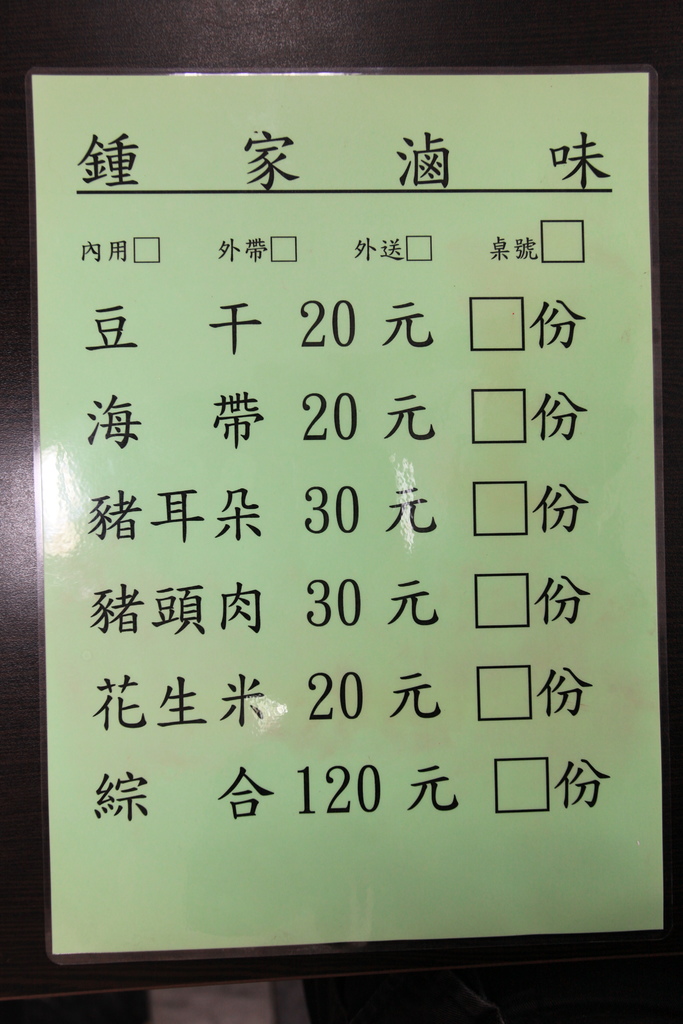 鍾家滷味
內用□ 外帶□ 外送□ 桌號□
豆干 20 元 □份
海帶 20 元 □份
豬耳朵 30 元 □份
豬頭肉 30 元 □份
花生米 20 元 □份
綜合 120 元 □份